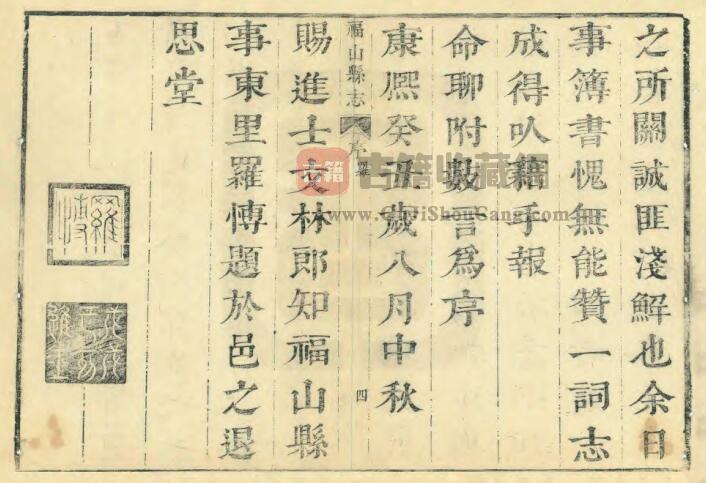 之所關誠匪淺解也余日
事簿書愧無能贊一詞志
成得以藉手報
命聊附數言爲序
康熙癸丑歲八月中秋
福山縣志 序 羅 四
賜進士文林郎知福山縣
事東里羅愽題於邑之退
思堂
古籍收藏网
www.GujiShouCang.com